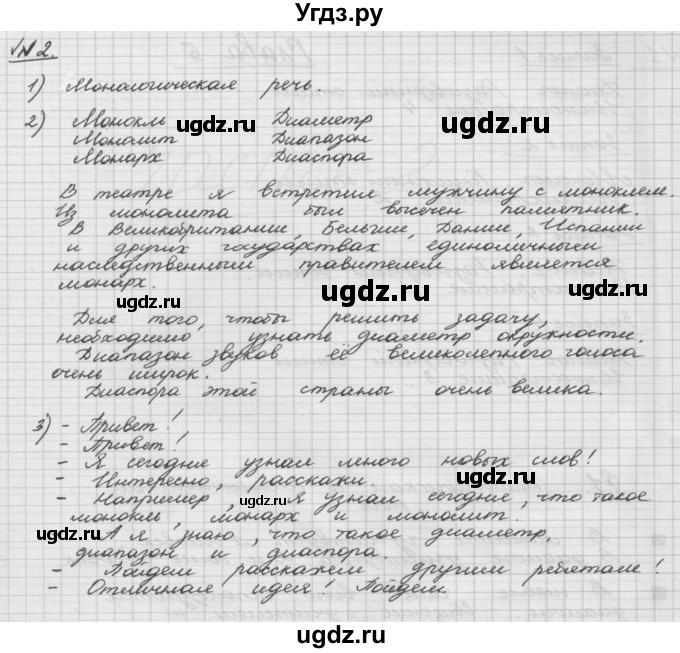 Угдз.ру
№2.
1) Монологическая речь.
2) Монокль Диаметр
ugdz.ru ugdz.ru
Монолит Диапазон
Монарх Диаспора
В театре я встретил мужчину с моноклем.
Из монолита был высечен памятник.
В Великобритании, Бельгии, Дании, Испании
и других государствах единоличным
наследственным правителем является
монарх.
ugdz.ru ugdz.ru ugdz.ru
Для того, чтобы решить задачу,
необходимо узнать диаметр окружности.
Диапазон звуков её великолепного голоса
очень широк.
ugdz.ru
Диаспора этой страны очень велика.
3) - Привет!
- Привет!
ugdz.ru ugdz.ru
- Я сегодня узнал много новых слов!
- Интересно, расскажи.
- Например, я узнал сегодня, что такое
ugdz.ru
монокль, монарх и монолит.
- А я знаю, что такое диаметр,
ugdz.ru ugdz.ru
диапазон и диаспора.
- Пойдем расскажем другим ребятам!
- Отличная идея! Пойдем.
ugdz.ru
ugdz.ru